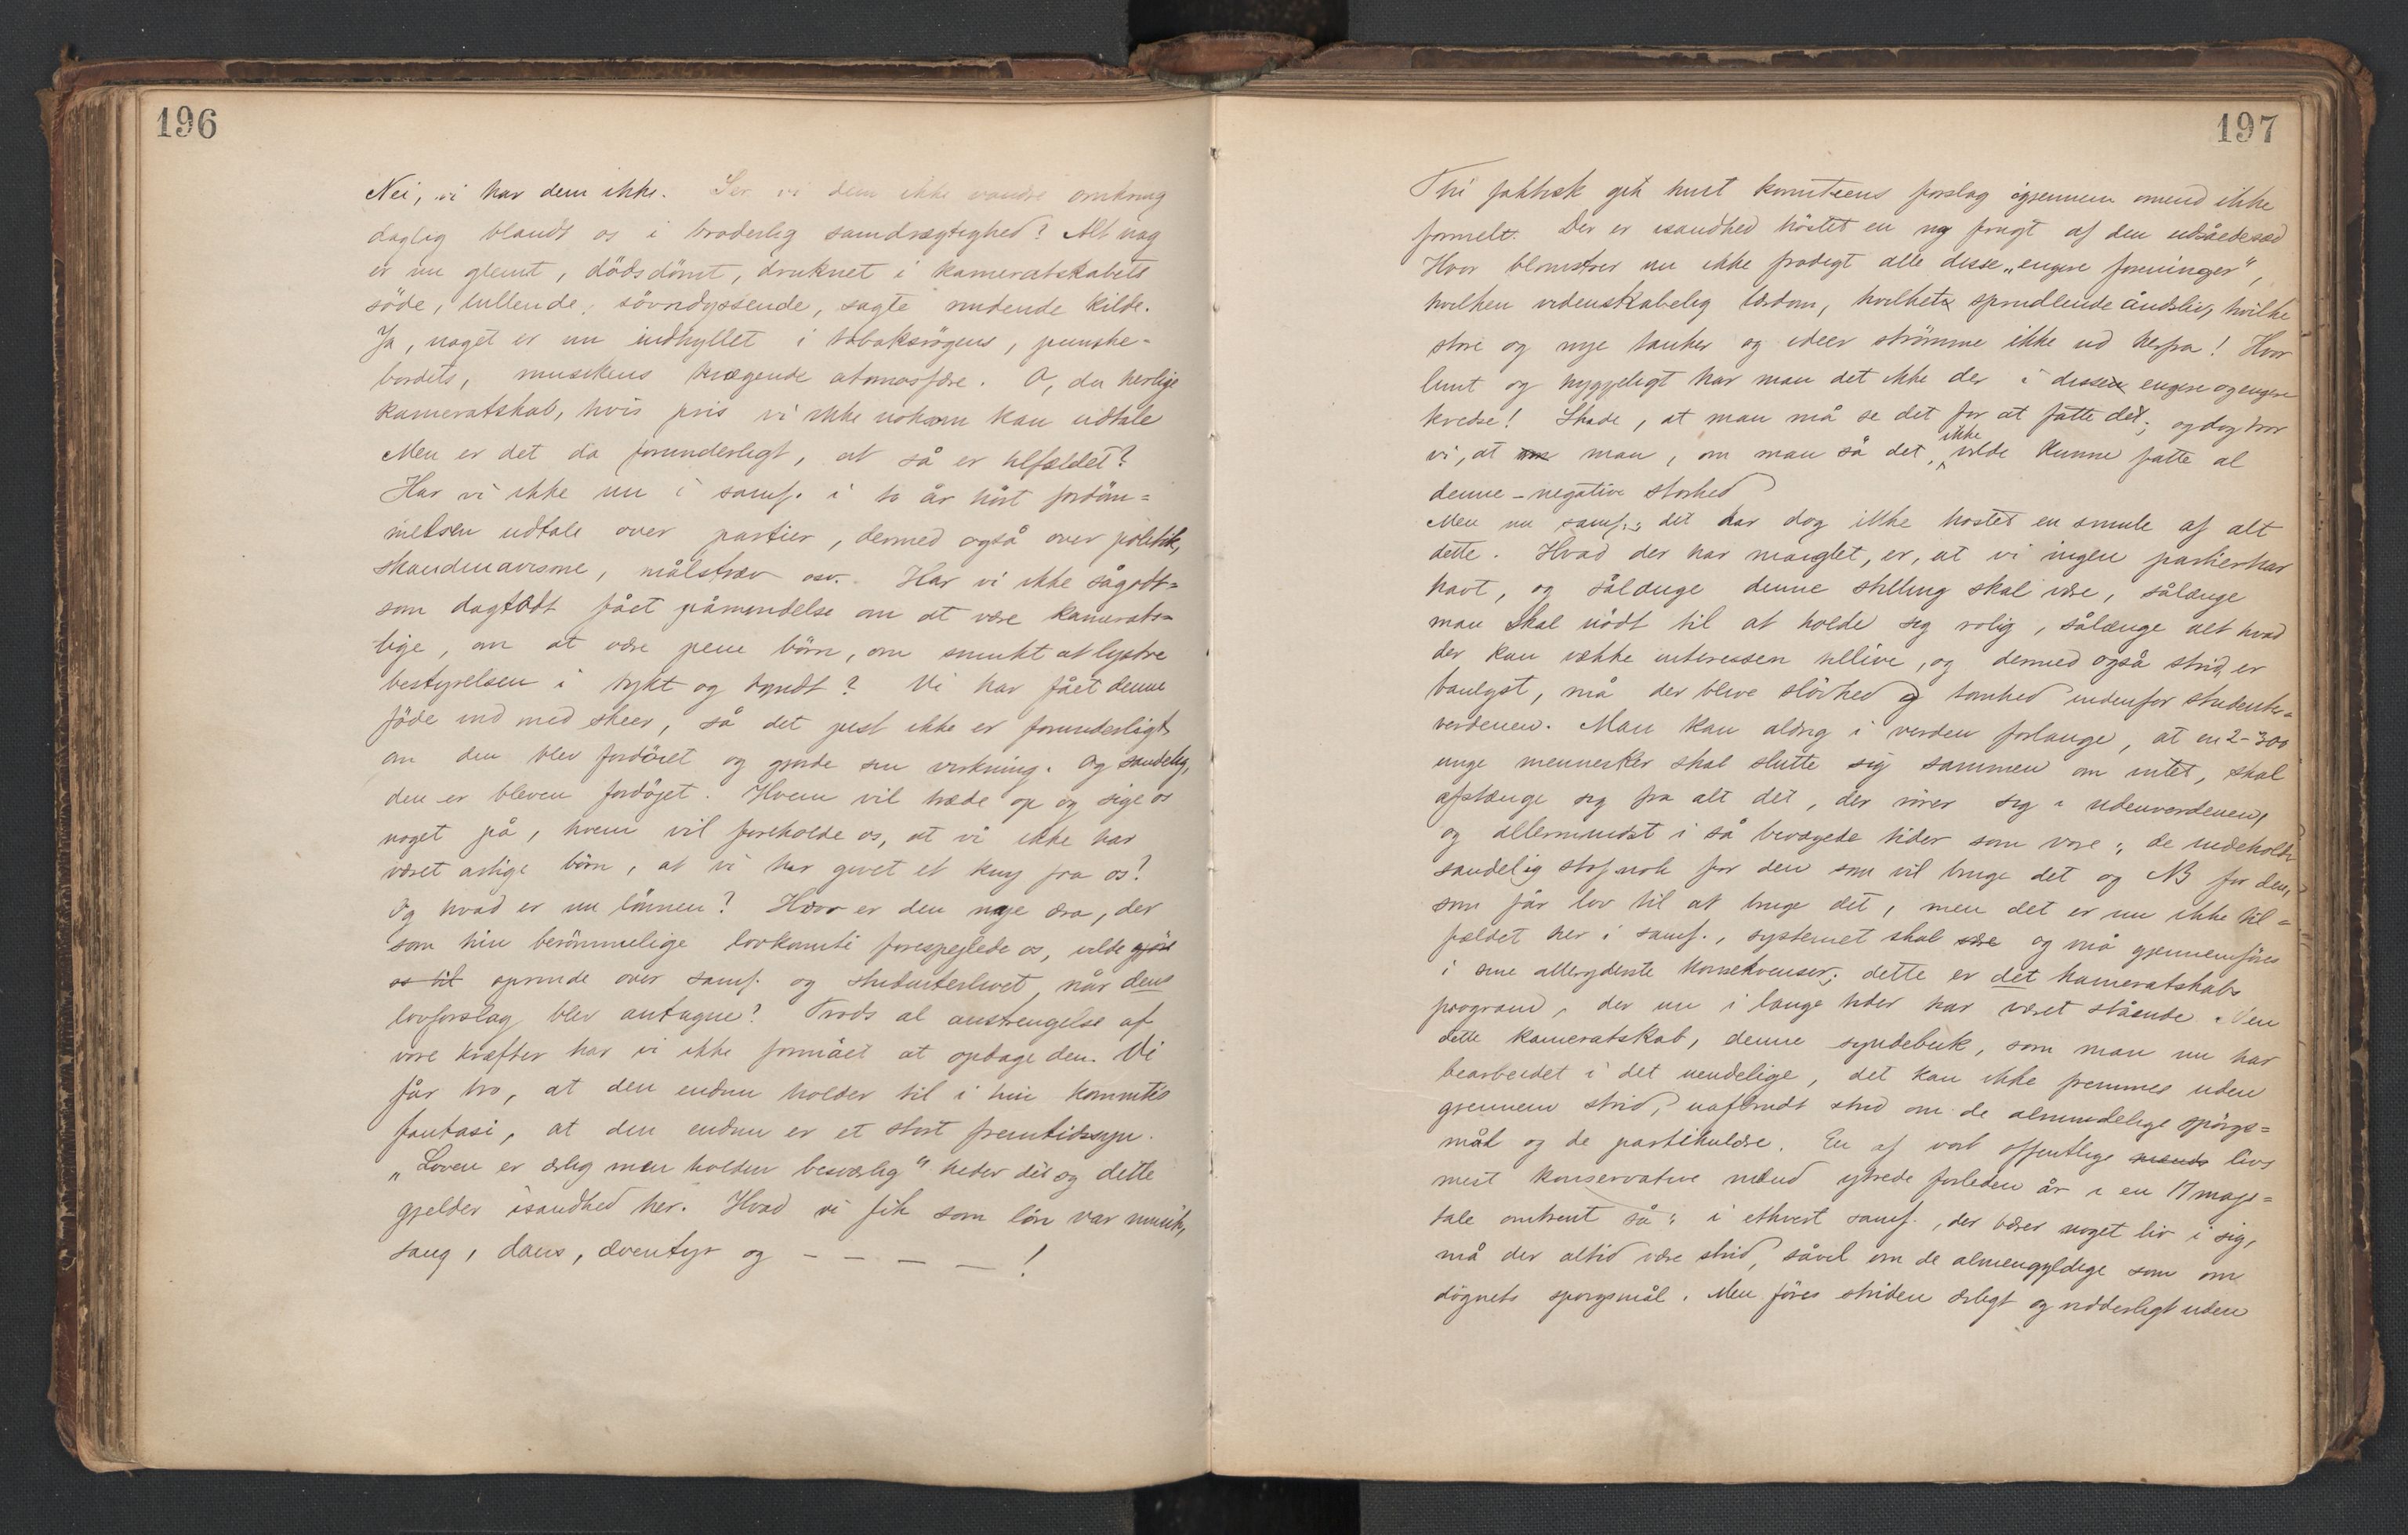 196
Nei, vi har dem ikke. Ser vi dem ikke vandre omkring
daglig blandt os i broderlig samdrægtighed? Alt nag
er nu glemt, dödsdömt, druknet i kameratskabets
söde, lullende, sövndyssende, sagte rindende kilde.
Ja, naget er nu indhyllet i tobaksrögens, punshe-
bordets, musikens kvægende atmosfære. O, du herlige
kameratskab, hvis pris vi ikke noksom kan udtale
Men er det da forunderligt, at så er tilfældet?
Har vi ikke nu i samf. i to år hört fordöm=
melsen udtale over partier, dermed også over politik,
skandinavisme, målstræv osv. Har vi ikke sågodt=
som dagstödt fået påmindelse om at være kamerats=
lige, om at være pene börn, om smukt at lystre
bestyrelsen i tykt og tyndt? Vi har fået denne
föde ind med skeer, så det just ikke er forunderligt
om den blev fordöiet og gjorde sin virkning. Og sandelig,
den er bleven fordöjet. Hvem vil træde op og sige os
noget på, hvem vil foreholde os, at vi ikke har
været artige börn, at vi har givet et kny fra os?
Og hvad er nu lönnen? Hvor er den nye æra, der
som hin berömmelige lovkomité forespeglede os, vilde gjöre
os til oprinde over samf. og studenterlivet, når dens
lovforslag blev antagne? Trods al anstrengelse af
vore kræfter har vi ikke formået at opdage den. Vi
får tro, at den endnu holder til i hin komités
fantasi, at den endnu er et stort fremtidssyn.
„Loven er ærlig men holden besværlig" heder det og dette
gjelder isandhed her. Hvad vi fik som lön var musik,
sang, dans, æventyr og – – – – !
197
Thi faktisk gik hint komiteens forslag igjennem omend ikke
formelt. Der er isandhed höstet en ny frugt af den udsåede sæd
Hvor blomstrer nu ikke frodigt alle disse „engere foreninger",
hvilken videnskabelig lærdom, hvilket sprudlende åndsliv, hvilke
store og nye tanker og ideer strömme ikke ud herfra! Hvor
lunt og hyggeligt har man det ikke der i disse engere og engere
kredse! Skade, at man må se det for at fatte det; og dog tror
vi, at om man, om man så det, ikke vilde kunne fatte al
denne – negative storhed
Men nu samf.; det har dog ikke höstet en smule af alt
dette. Hvad der har manglet, er, at vi ingen partier har
havt, og sålænge denne stilling skal være, sålænge
man skal nödt til at holde seg rolig, sålænge alt hvad
der kan vække interessen tillive, og dermed også strid, er
banlyst, må der blive slövhed og tomhed indenfor studenter=
verdenen. Man kan aldrig i verden forlange, at en 2-300
unge mennesker skal slutte sig sammen om intet, skal
afstænge seg fra alt det, der rörer sig i udenverdenen,
og allermindst i så bevægede tider som vore; de indeholder
sandelig stof nok for den som vil bruge det og NB for den,
som får lov til at bruge det, men det er nu ikke til=
fældet her i samf., systemet skal være og må gjennemföres
i sine alleryderste konsekvenser; dette er det kameratskabs
program, der nu i lange tider har været stående. Men
dette kameratskab, denne syndebuk, som man nu har
bearbeidet i det uendelige, det kan ikke fremmes uden
gjennem strid, uafbrudt strid om de almindelige spörgs=
mål og de partikulære. En af vort offentlige mænds livs
mest konservative mænd ytrede forleden år i en 17 majs=
tale omtrent så: i ethvert samf., der bærer noget liv i sig,
må der altid være strid, såvel om de almengyldige som om
dögnets spörgsmål. Men föres striden ærligt og ridderligt uden